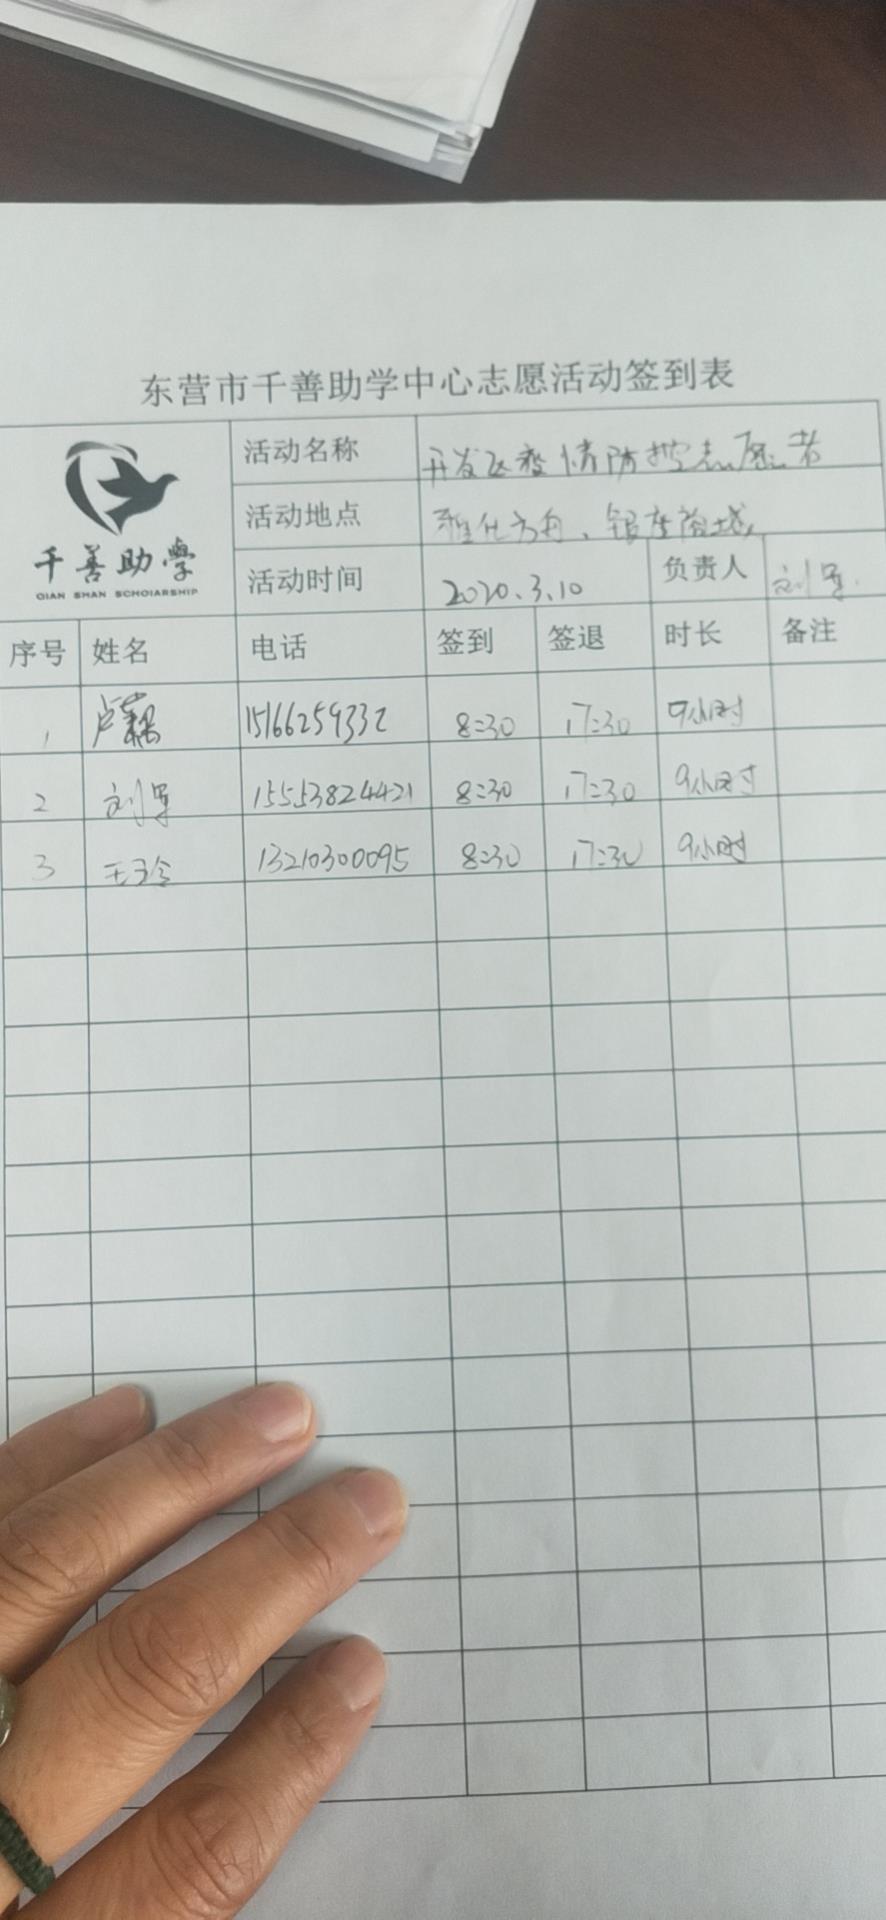 东营市千善助学中心志愿活动签到表
千善助學
QIAN SHAN SCHOIARSHIP
活动名称 开发区疫情防控志愿者
活动地点 雅仕方舟、银座商城
活动时间 2020.3.10 负责人 刘军
序号 姓名 电话 签到 签退 时长 备注
1 卢 15166259332 8:30 17:30 9小时
2 刘军 15553824421 8:30 17:30 9小时
3 王玲 13210300095 8:30 17:30 9小时